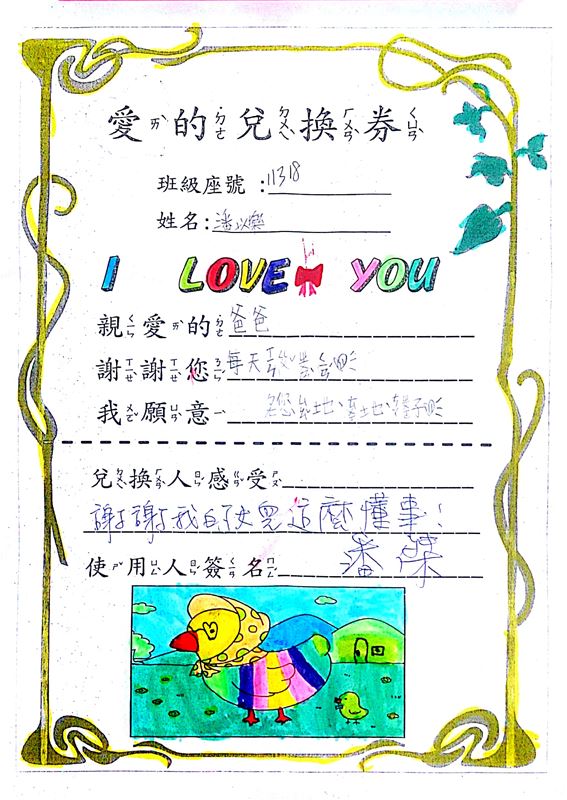 愛ㄞˋ的ㄉㄜ˙兌ㄉㄨㄟˋ換ㄏㄨㄢˋ券ㄑㄩㄢˋ
班級座號：11318
姓名：潘以樂
I LOVE YOU
親ㄑㄧㄣ愛ㄞˋ的ㄉㄜ˙爸爸
謝ㄒㄧㄝˋ謝ㄒㄧㄝ˙您ㄋㄧㄣˊ每天
我ㄨㄛˇ願ㄩㄢˋ意ㄧˋ
兌ㄉㄨㄟˋ換ㄏㄨㄢˋ人ㄖㄣˊ感ㄍㄢˇ受ㄕㄡˋ
謝謝我的女兒這麼懂事！
使ㄕˇ用ㄩㄥˋ人ㄖㄣˊ簽ㄑㄧㄢ名ㄇㄧㄥˊ潘